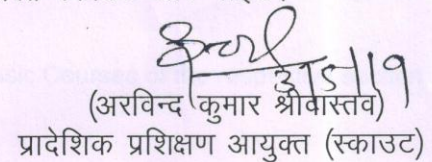 3/5/19
(अरविन्द कुमार श्रीवास्तव)
प्रादेशिक प्रशिक्षण आयुक्त (स्काउट)